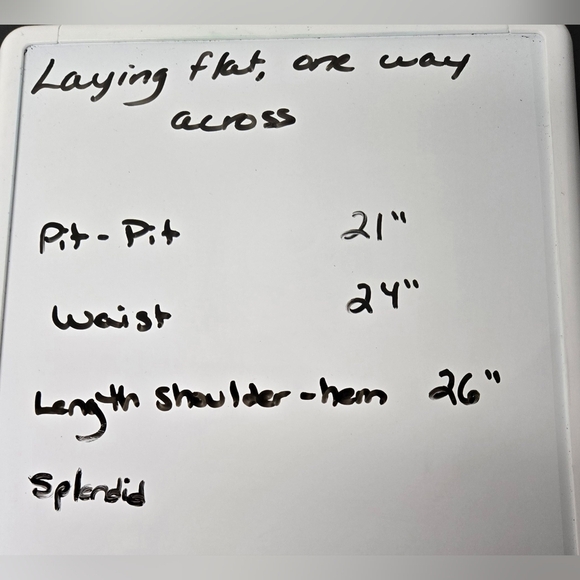 Laying flat, one way
across
Pit - Pit 21"
Waist 24"
Length shoulder - hem 26"
Splendid